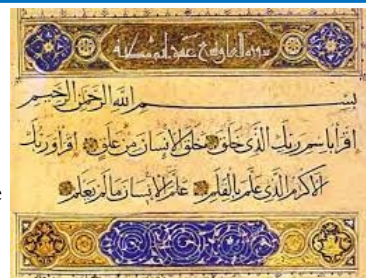 سورة العلق مكية
بِسْمِ اللهِ الرَّحْمٰنِ الرَّحِيمِ
اقْرَأْ بِاسْمِ رَبِّكَ الَّذِي خَلَقَ خَلَقَ الْاِنْسَانَ مِنْ عَلَقٍ اقْرَأْ وَرَبُّكَ
الْاَكْرَمُ الَّذِي عَلَّمَ بِالْقَلَمِ عَلَّمَ الْاِنْسَانَ مَا لَمْ يَعْلَمْ
e